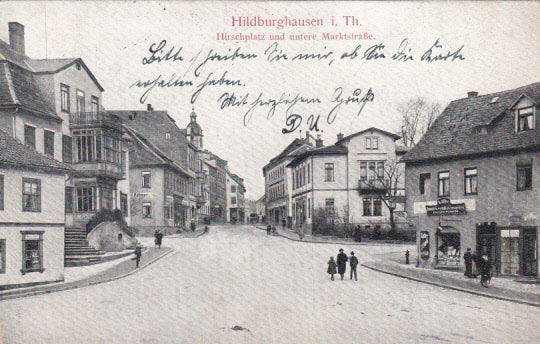 Hildburghausen i. Th.
Hirschplatz und untere Marktstraße.
Bitte schreiben Sie mir, ob Sie die Karte
erhalten haben.
Mit herzlichem Gruß